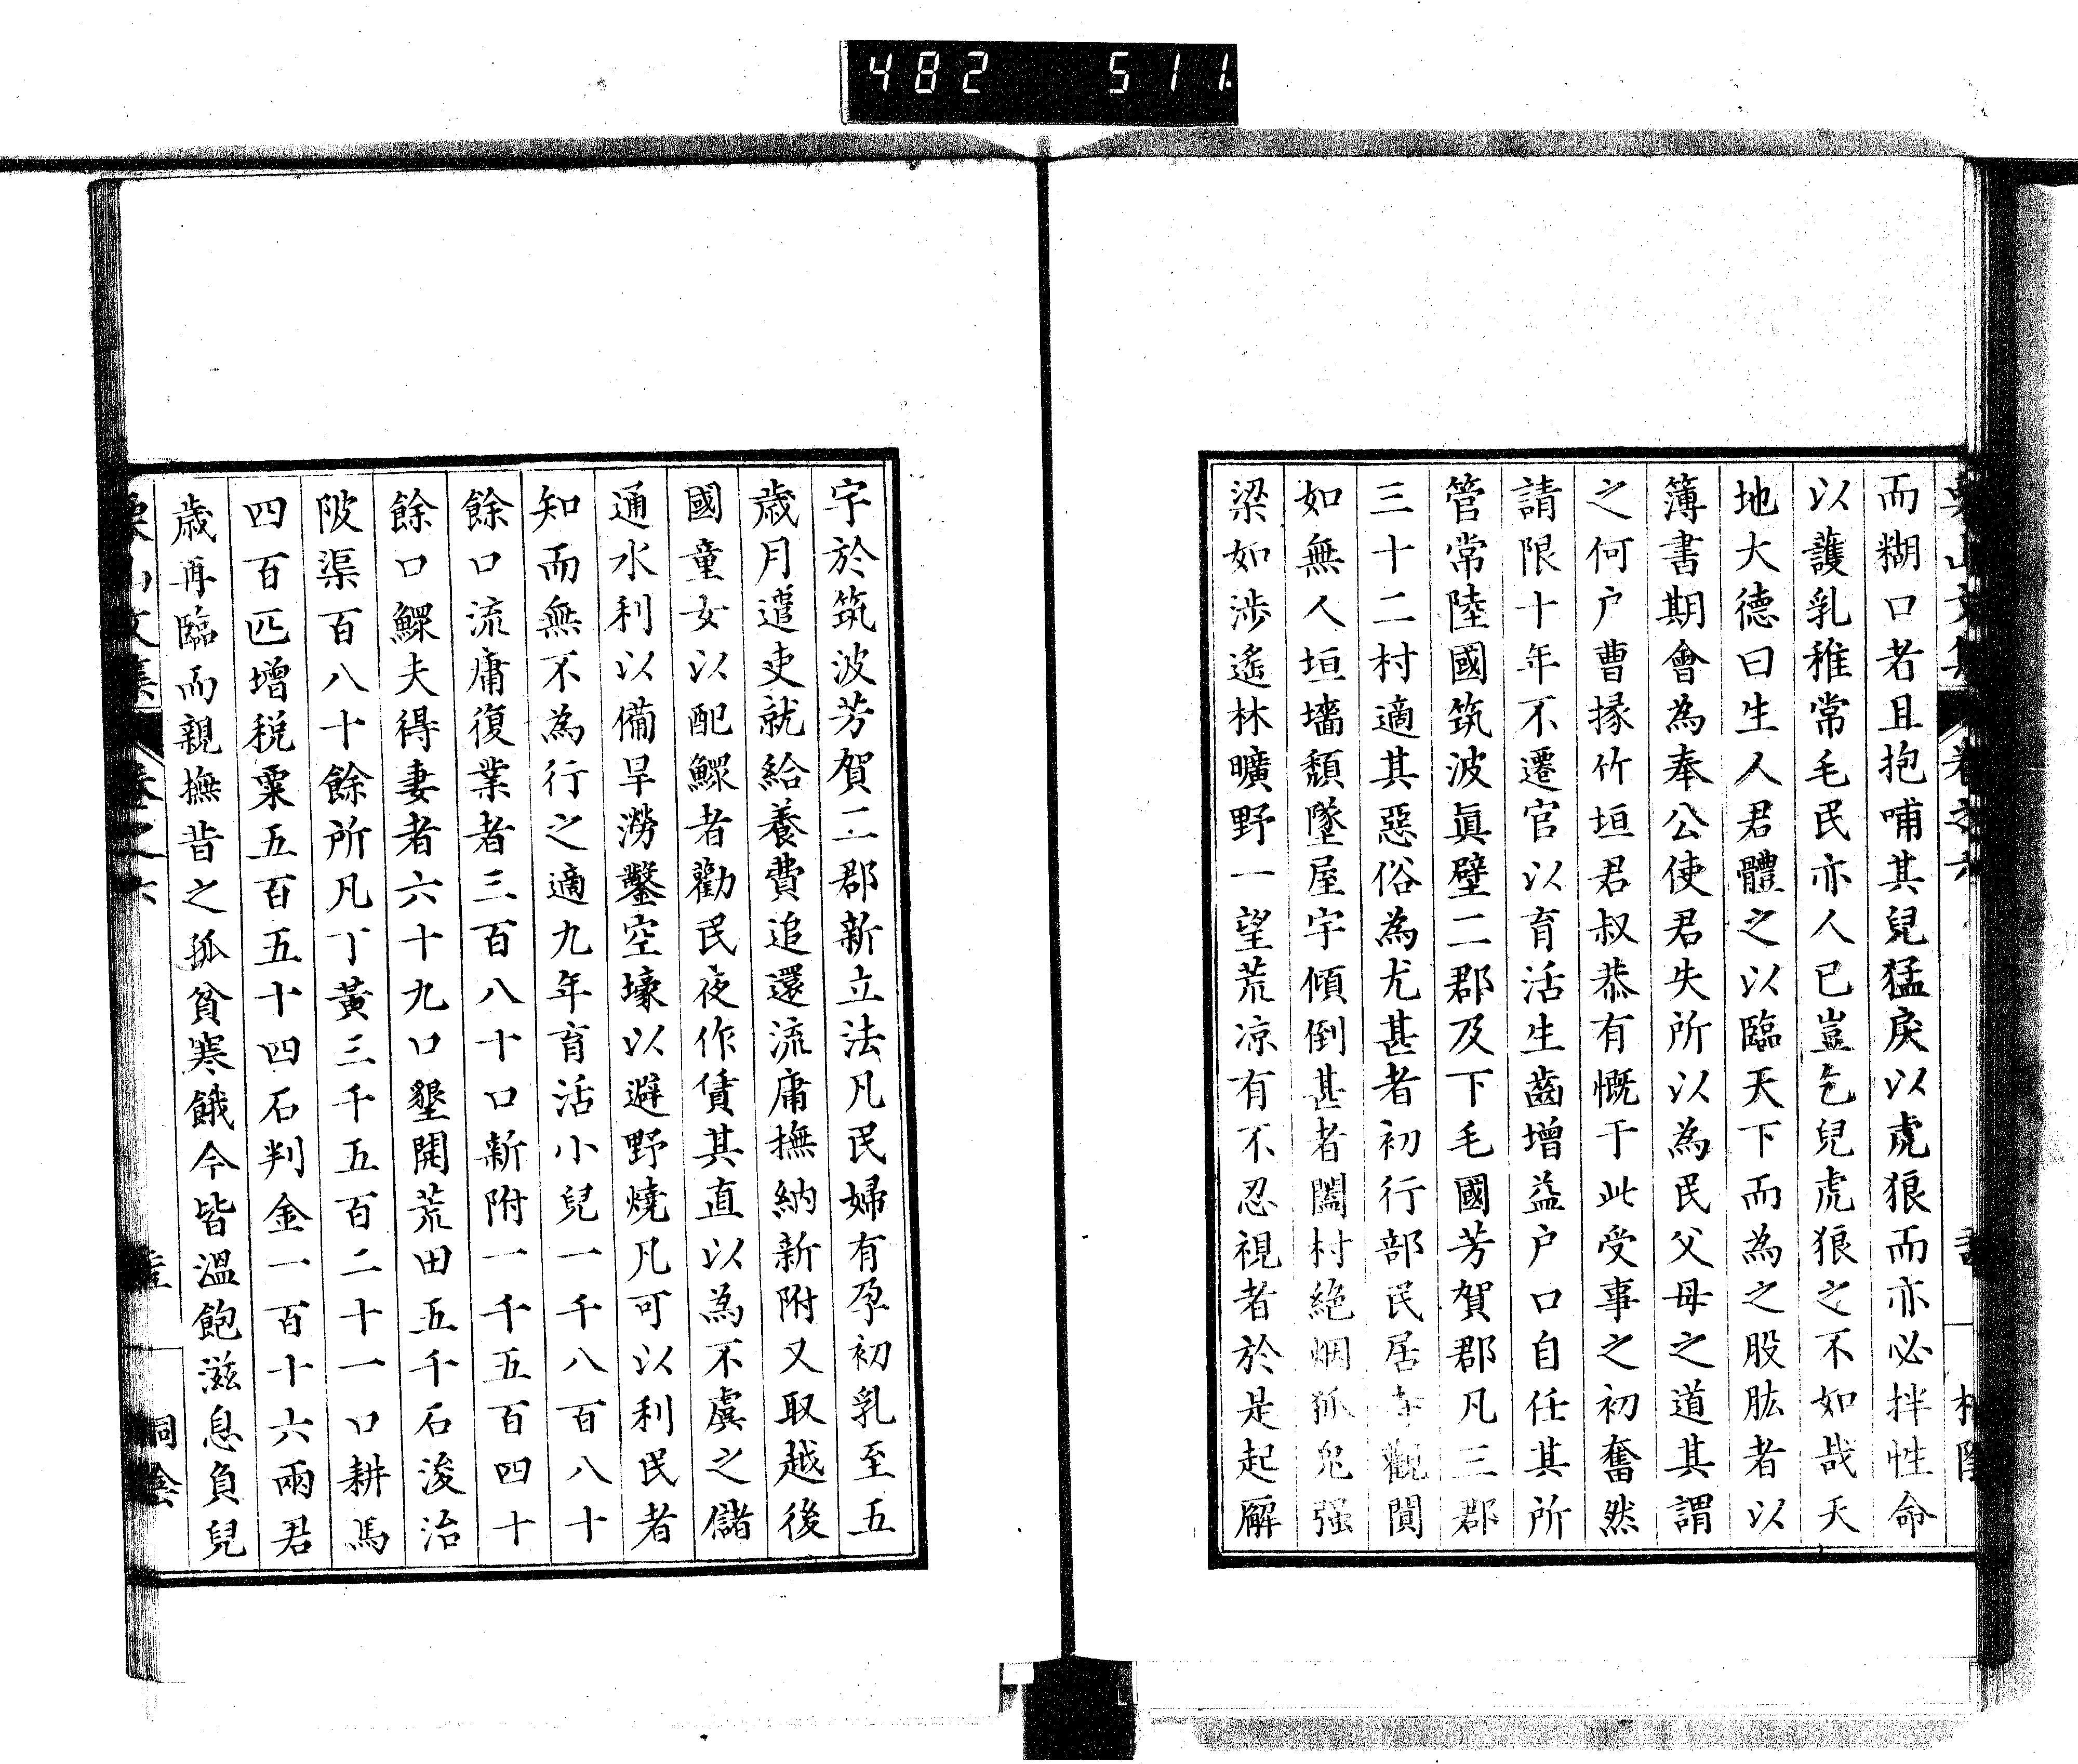 482 511.
而糊口者且抱哺其兒猛戾以虎狼而亦必拌性命
以護乳稚常毛民亦人已豈乞兒虎狼之不如哉天
地大德曰生人君體之以臨天下而為之股肱者以
簿書期會為奉公使君失所以為民父母之道其謂
之何户曹掾竹垣君叔恭有慨于此受事之初奮然
請限十年不遷官以育活生齒增益户口自任其所
管常陸國筑波眞壁二郡及下毛國芳賀郡凡三郡
三十二村適其惡俗為尤甚者初行部民居寺觀閴
如無人垣墻頹墜屋宇傾倒甚者闔村絶烟狐鬼强
梁如涉遙林曠野一望荒凉有不忍視者於是起廨
宇於筑波芳賀二郡新立法凡民婦有孕初乳至五
歳月遣吏就給養費追還流庸撫納新附又取越後
國童女以配鰥者勸民夜作賃其直以為不虞之儲
通水利以備旱澇鑿空壕以避野燒凡可以利民者
知而無不為行之適九年育活小兒一千八百八十
餘口流庸復業者三百八十口新附一千五百四十
餘口鰥夫得妻者六十九口墾開荒田五千石浚治
陂渠百八十餘所凡丁黃三千五百二十一口耕馬
四百匹增税粟五百五十四石判金一百十六兩君
歳再臨而親撫昔之孤貧寒餓今皆溫飽滋息負兒
栗山文集 卷之六
桐陰